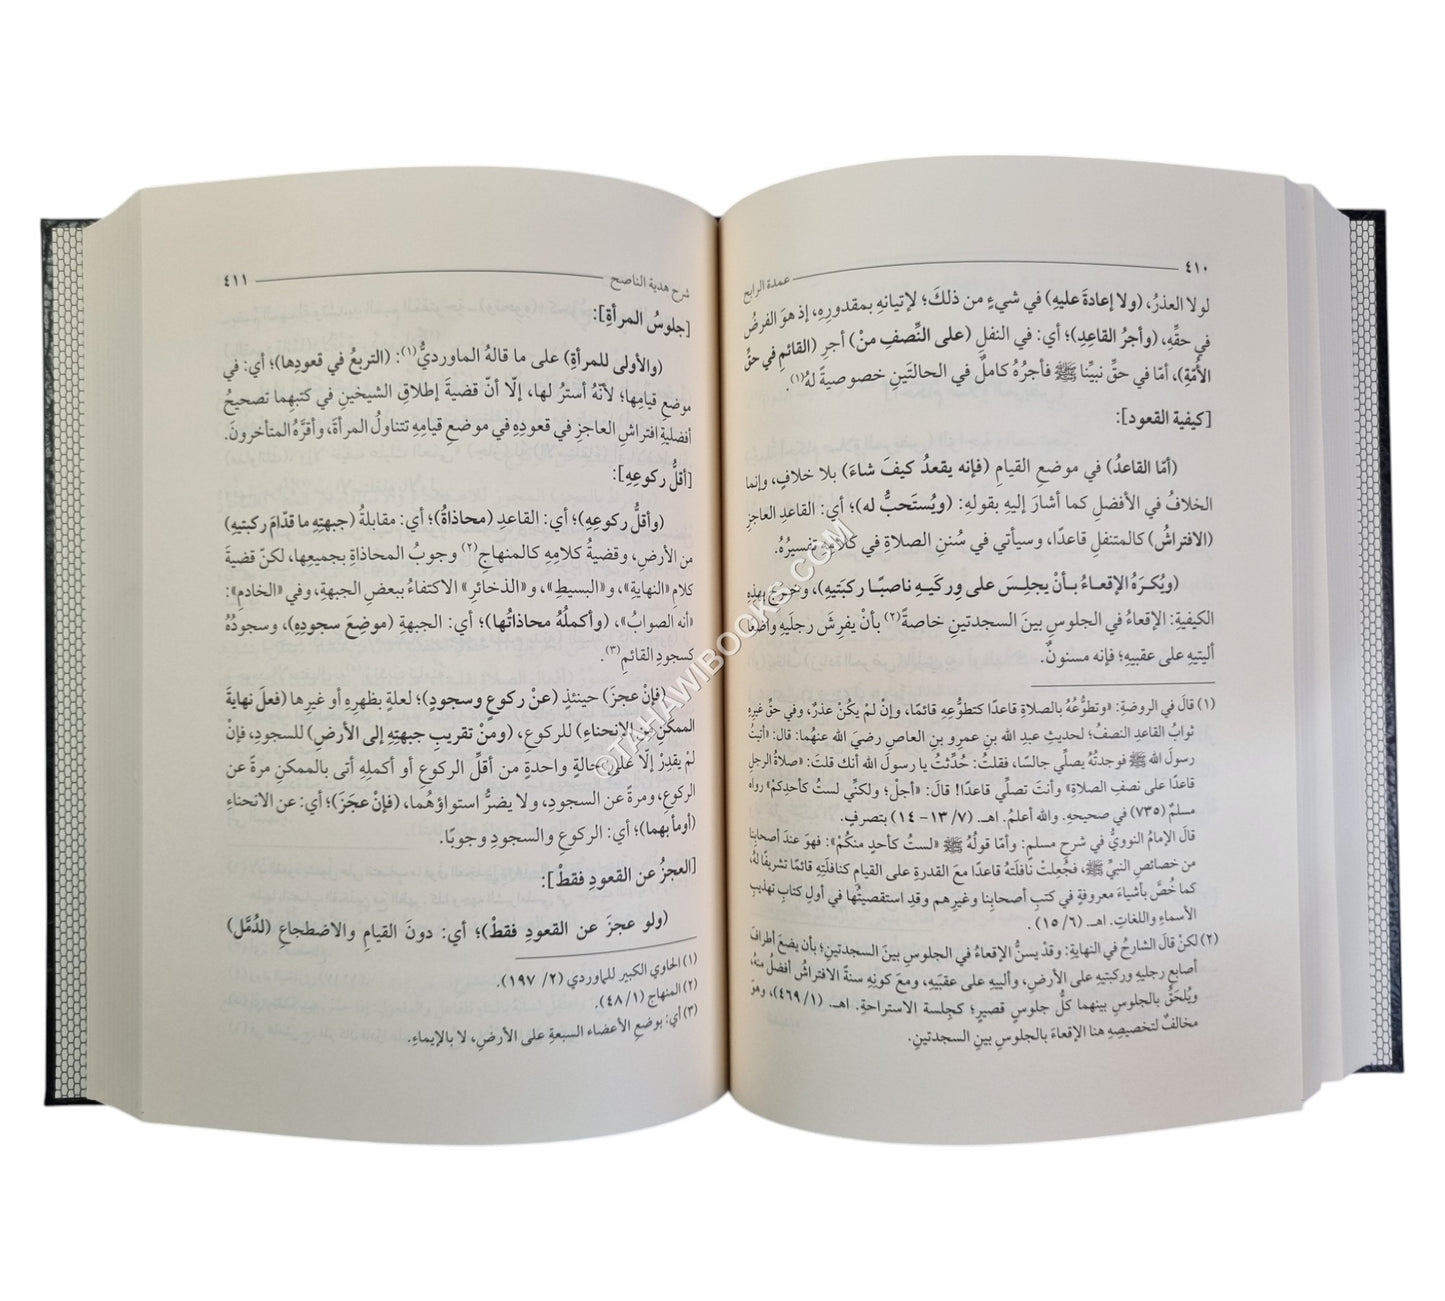 ٤١٠
عمدة الرابح
لولا العذرُ، (ولا إعادةَ عليهِ) في شيءٍ من ذلكَ؛ لإتيانهِ بمقدورِهِ، إذ هوَ الفرضُ
في حقِّهِ، (وأجرُ القاعِدِ)؛ أي: في النفلِ (على النِّصفِ منْ) أجرِ (القائمِ في حقِّ
الأُمّةِ)، أمّا في حقِّ نبيِّنا ﷺ فأجرُهُ كاملٌ في الحالتَينِ خصوصيةً لهُ(١).
[كيفية القعود]:
(أمّا القاعدُ) في موضعِ القيامِ (فإنه يقعدُ كيفَ شاءَ) بلا خلافٍ، وإنما
الخلافُ في الأفضلِ كما أشارَ إليهِ بقولهِ: (ويُستَحبُّ له)؛ أي: القاعدِ العاجزِ
(الافتراشُ) كالمتنفلِ قاعدًا، وسيأتي في سُننِ الصلاةِ في كلامِهِ تفسيرُهُ.
(ويُكرَهُ الإقعاءُ بأنْ يجلِسَ على وِركَيهِ ناصبًا ركبَتيهِ)، وتخرجُ بهذهِ
الكيفيةِ: الإقعاءُ في الجلوسِ بينَ السجدتينِ خاصةً(٢) بأنْ يفرِشَ رجلَيهِ واضعًا
أليتيهِ على عقبيهِ؛ فإنه مسنونٌ.
(١) قالَ في الروضةِ: «وتطوُّعُهُ بالصلاةِ قاعدًا كتطوُّعِهِ قائمًا، وإنْ لمْ يكُنْ عذرٌ، وفي حقِّ غيرِهِ
ثوابُ القاعدِ النصفُ؛ لحديثِ عبدِ الله بنِ عمرِو بنِ العاصِ رضيَ الله عنهُما: قال: «أتيتُ
رسولَ الله ﷺ فوجدتُهُ يصلِّي جالسًا، فقلتُ: حُدِّثتُ يا رسولَ الله أنك قلتَ: «صلاةُ الرجلِ
قاعدًا على نصفِ الصلاةِ» وأنتَ تصلِّي قاعدًا! قالَ: «أجلْ؛ ولكنِّي لستُ كأحدِكمْ» رواه
مسلمٌ (٧٣٥) في صحيحهِ. والله أعلمُ. اهـ. (٧/ ١٣- ١٤) بتصرفٍ.
قالَ الإمامُ النوويُّ في شرحِ مسلمٍ: وأمّا قولُهُ ﷺ «لستُ كأحدٍ منكُمْ»: فهوَ عندَ أصحابِنا
من خصائصِ النبيِّ ﷺ، فجُعِلتْ نافلَتُهُ قاعدًا معَ القدرةِ على القيامِ كنافلَتِهِ قائمًا تشريفًا لهُ،
كما خُصَّ بأشياءَ معروفةٍ في كتبِ أصحابِنا وغيرِهم وقدِ استقصيتُها في أولِ كتابِ تهذيبِ
الأسماءِ واللغاتِ. اهـ. (٦/ ١٥).
(٢) لكنْ قالَ الشارحُ في النهايةِ: وقدْ يسنُّ الإقعاءُ في الجلوسِ بينَ السجدتينِ؛ بأن يضعَ أطرافَ
أصابعِ رجليهِ وركبتيهِ على الأرضِ، وألييهِ على عقبَيهِ، ومَعَ كونِهِ سنةً الافتراشُ أفضلُ منهُ،
ويُلحَقُ بالجلوسِ بينهما كلُّ جلوسٍ قصيرٍ؛ كجِلسةِ الاستراحةِ. اهـ. (١/ ٤٦٩)، وهوَ
مخالفٌ لتخصيصِهِ هنا الإقعاءَ بالجلوسِ بينَ السجدتينِ.
شرح هدية الناصح
٤١١
[جلوسُ المرأةِ]:
(والأولى للمرأةِ) على ما قالهُ الماورديُّ(١): (التربعُ في قعودِها)؛ أي: في
موضعِ قيامِها؛ لأنّهُ أسترُ لها، إلّا أنّ قضيةَ إطلاقِ الشيخينِ في كتبِهما تصحيحُ
أفضليةِ افتراشِ العاجزِ في قعودِهِ في موضعِ قيامِهِ تتناولُ المرأةَ، وأقرَّهُ المتأخرونَ.
[أقلُّ ركوعِهِ]:
(وأقلُّ ركوعِهِ)؛ أي: القاعدِ (محاذاةُ)؛ أي: مقابلةُ (جبهتِهِ ما قدّامَ ركبتيهِ)
من الأرضِ، وقضيةُ كلامِهِ كالمنهاجِ(٢) وجوبُ المحاذاةِ بجميعِها، لكنّ قضيةَ
كلامِ «النهايةِ»، و«البسيطِ»، و«الذخائرِ» الاكتفاءُ ببعضِ الجبهةِ، وفي «الخادمِ»:
«أنه الصوابُ»، (وأكملُهُ محاذاتُها)؛ أي: الجبهةِ (موضِعَ سجودِهِ)، وسجودُهُ
كسجودِ القائمِ(٣).
(فإنْ عجزَ) حينئذٍ (عنْ ركوعٍ وسجودٍ)؛ لعلةٍ بظهرِهِ أو غيرِها (فعلَ نهايةَ
الممكنِ من الانحناءِ) للركوعِ، (ومنْ تقريبِ جبهتِهِ إلى الأرضِ) للسجودِ، فإنْ
لمْ يقدِرْ إلّا على حالةٍ واحدةٍ من أقلِّ الركوعِ أو أكملِهِ أتى بالممكنِ مرةً عن
الركوعِ، ومرةً عن السجودِ، ولا يضرُّ استواؤهُما، (فإنْ عجَزَ)؛ أي: عن الانحناءِ
(أومأ بهما)؛ أي: الركوعِ والسجودِ وجوبًا.
[العجزُ عن القعودِ فقطْ]:
(ولو عجزَ عن القعودِ فقطْ)؛ أي: دونَ القيامِ والاضطجاعِ (لدُمَّلٍ)
(١) الحاوي الكبير للماوردي (٢/ ١٩٧).
(٢) المنهاج (١/ ٤٨).
(٣) أي: بوضعِ الأعضاءِ السبعةِ على الأرضِ، لا بالإيماءِ.
© TAHAWIBOOKS.COM